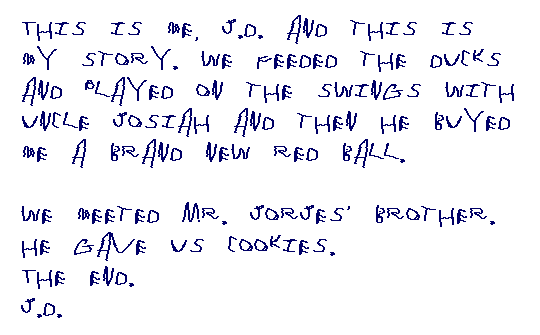 THIS IS ME, J.D. AND THIS IS
MY STORY. WE FEEDED THE DUCKS
AND PLAYED ON THE SWINGS WITH
UNCLE JOSIAH AND THEN HE BUYED
ME A BRAND NEW RED BALL.

WE MEETED MR. JORJES' BROTHER.
HE GAVE US COOKIES.
THE END.
J.D.